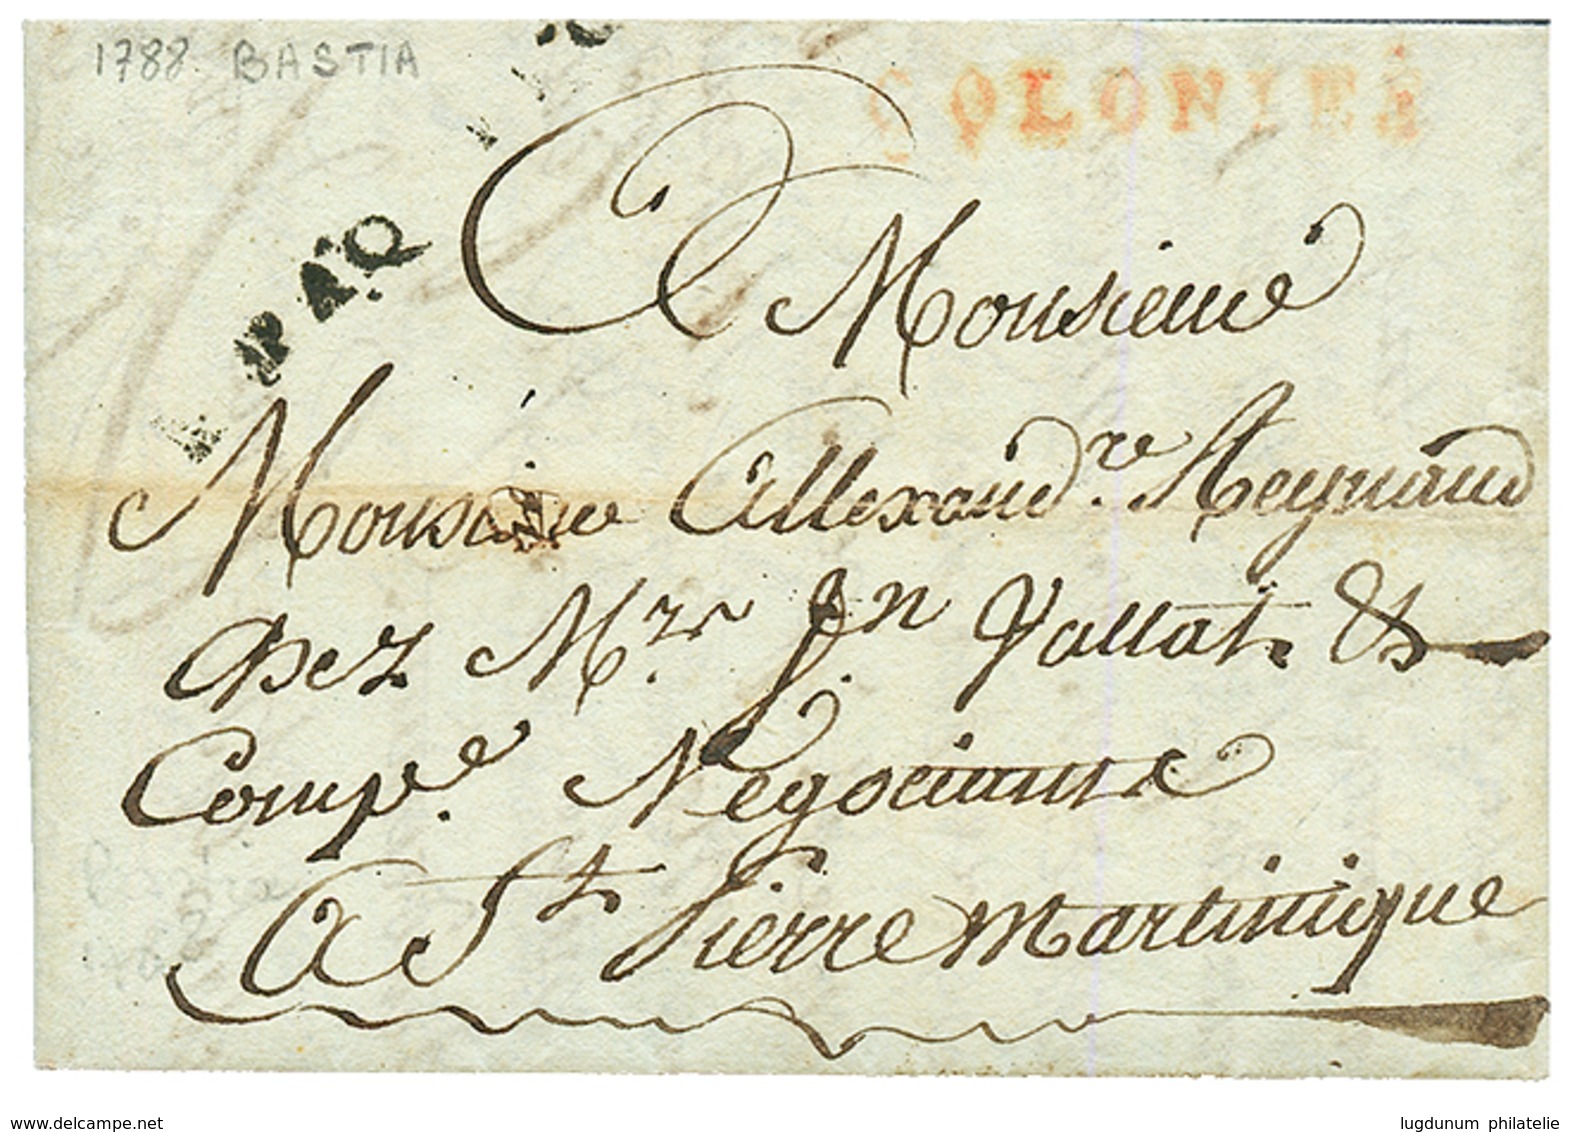 1788 BASTIA
COLONIES
PAQ
Monsieur
Monsieur Allexand.re Reynaud
Chez M.rs J.n Vallat &
Comp.e Negocians
A St Pierre Martinique
1788
www.delcampe.net
lugdunum philatelie